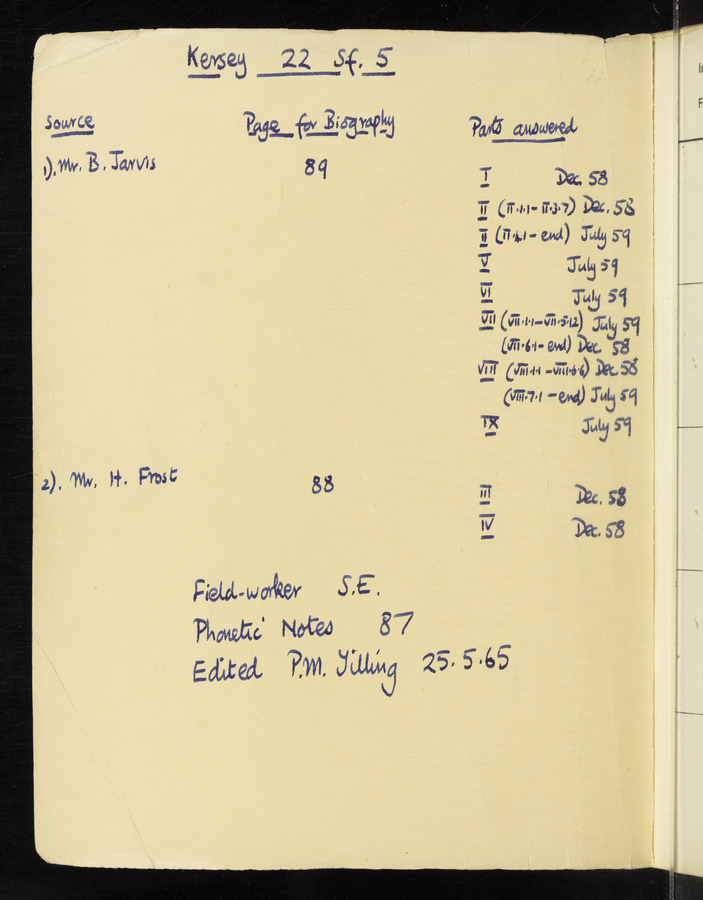 Kersey 22 Sf. 5
Source Page for Biography Parts answered
1). Mr. B. Jarvis 89 I Dec. 58
II (II.1.1 - II.3.7) Dec. 58
II (II.4.1 - end) July 59
V July 59
VI July 59
VII (VII.1.1 - VII.5.12) July 59
(VII.6.1 - end) Dec. 58
VIII (VIII.1.1 - VIII.6.6) Dec 58
(VIII.7.1 - end) July 59
IX July 59
2). Mr. H. Frost 88 III Dec. 58
IV Dec. 58
Field-worker S.E.
Phonetic Notes 87
Edited P.M. Tilling 25.5.65